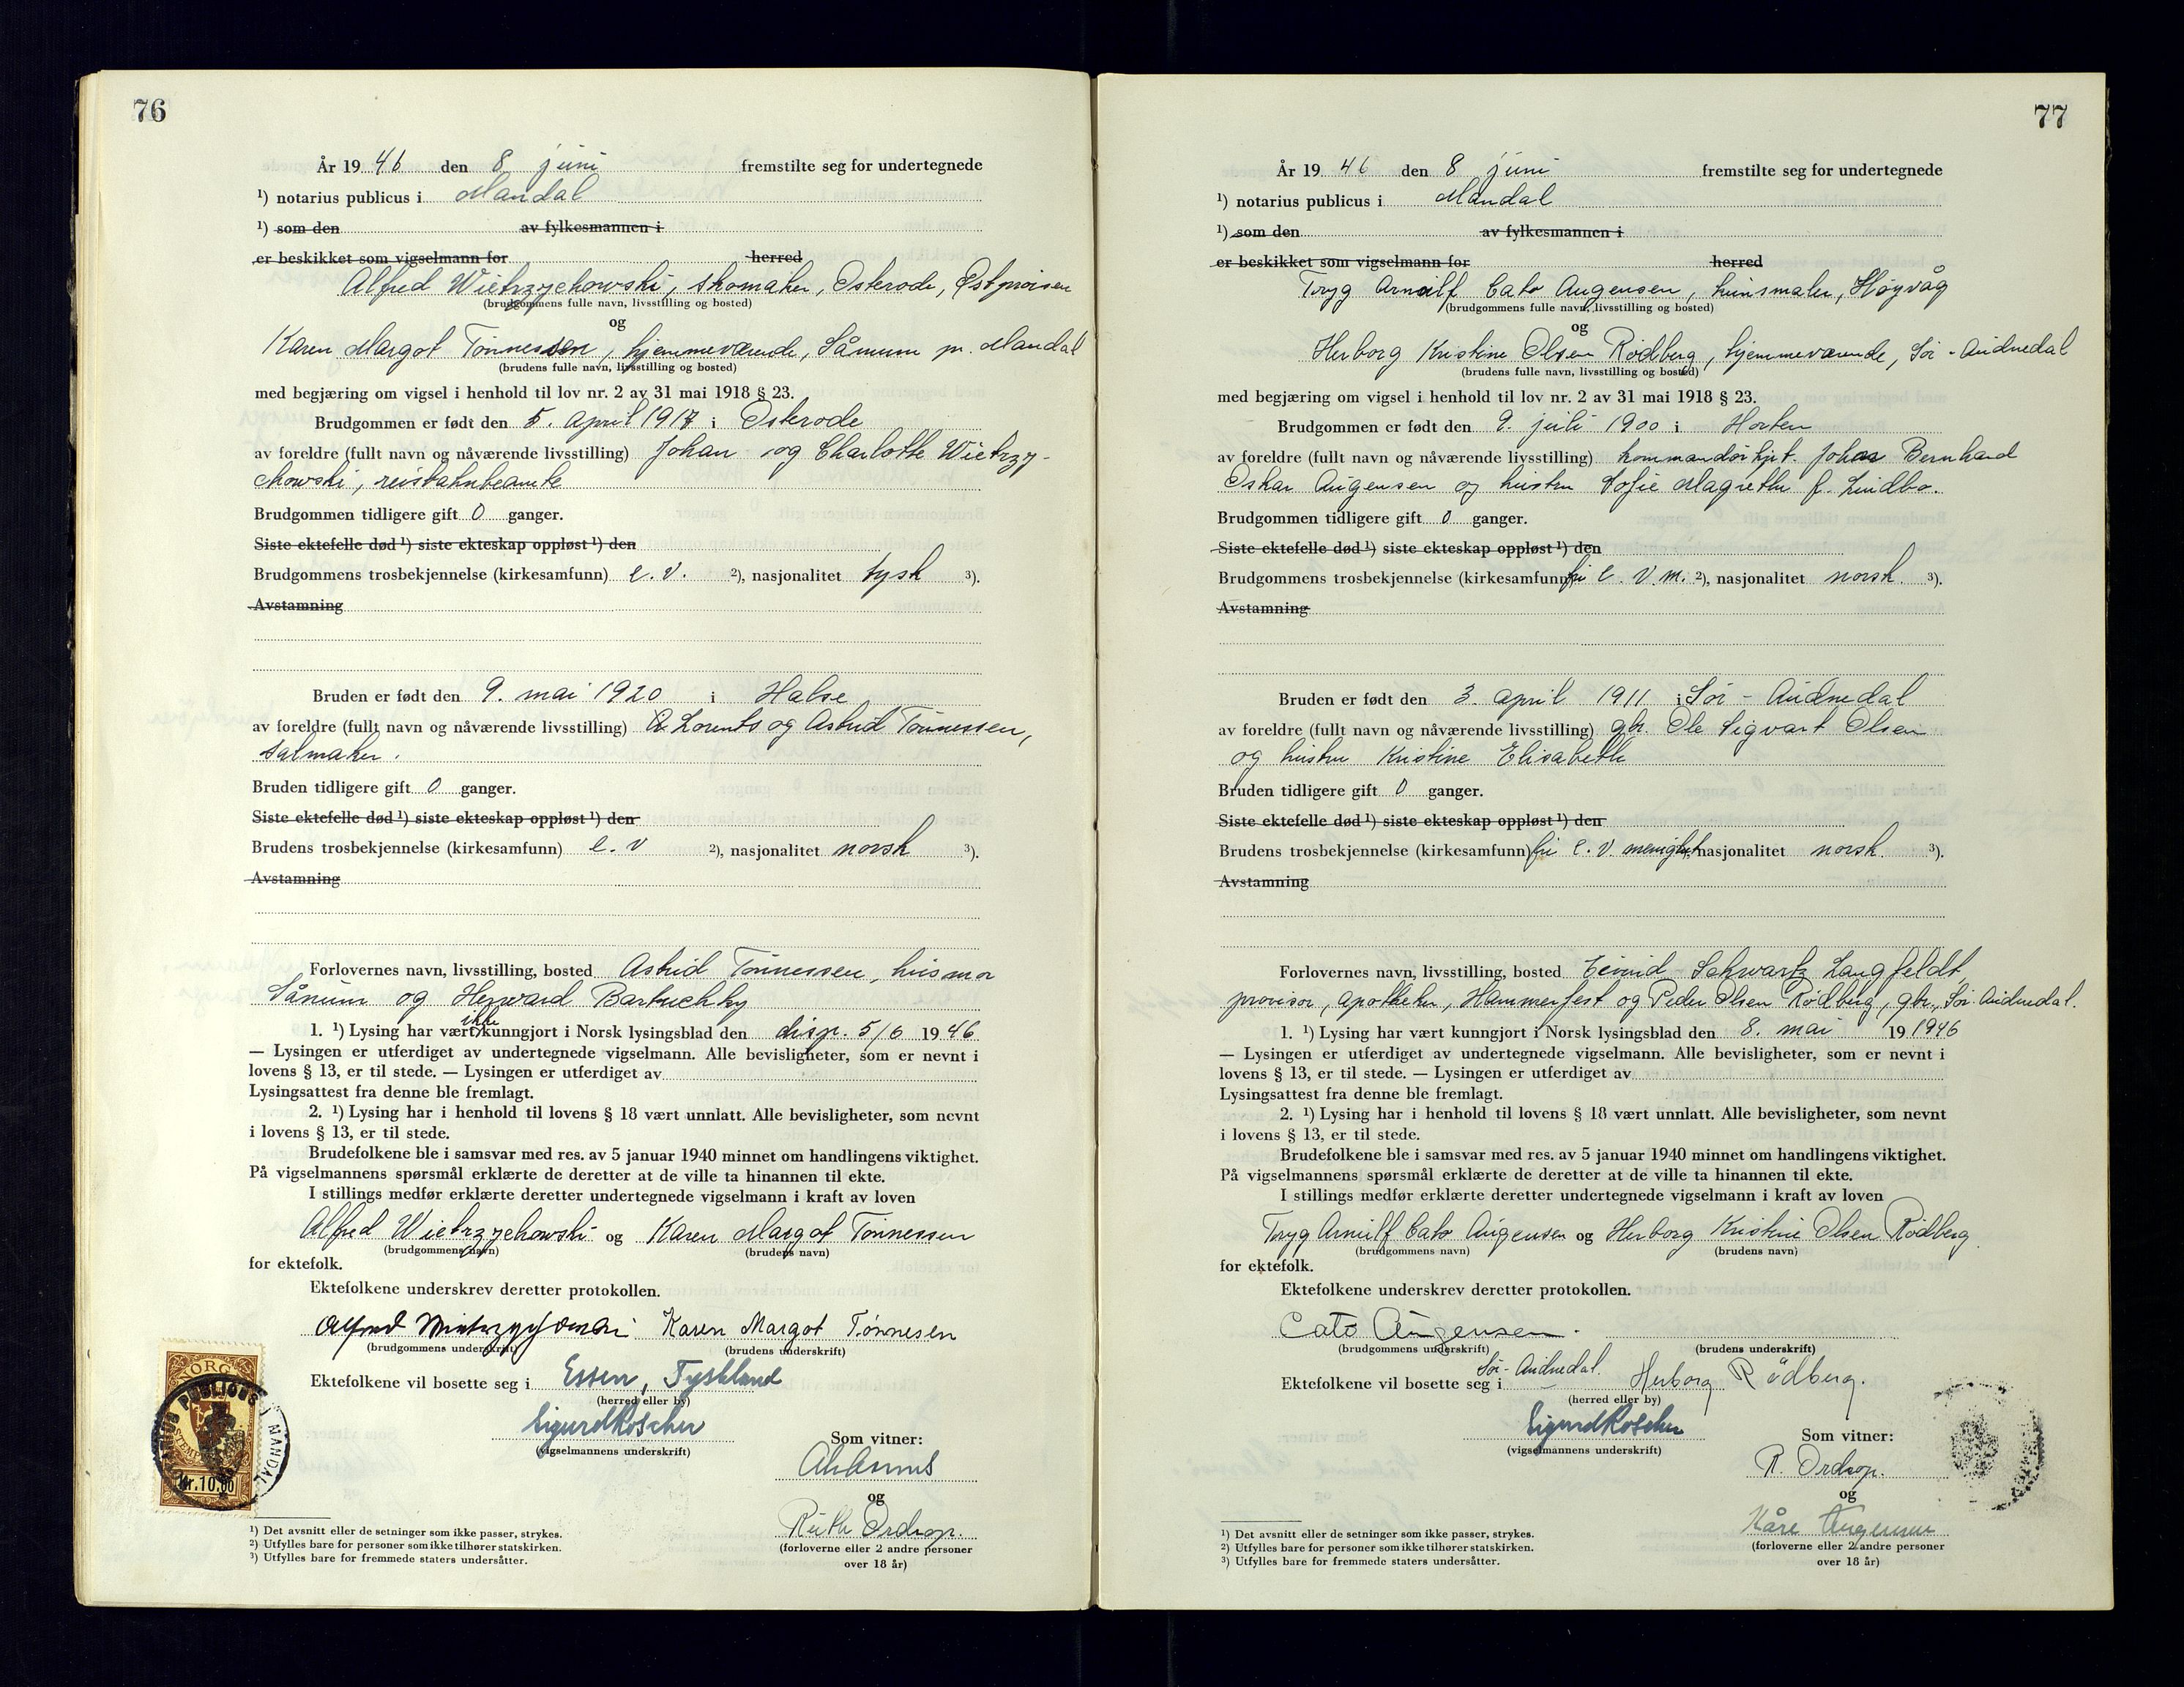 76
År 19 46 den 8 juni fremstilte seg for undertegnede
¹) notarius publicus i Mandal
¹) som den av fylkesmannen i
er beskikket som vigselmann for herred
Alfred Wietrzychowski, skomaker, Osterode, Østprøisen
(brudgommens fulle navn, livsstilling og bosted)
og
Karen Margot Tønnessen, hjemmeværende, Sånum pr. Mandal
(brudens fulle navn, livsstilling og bosted)
med begjæring om vigsel i henhold til lov nr. 2 av 31 mai 1918 § 23.
Brudgommen er født den 5. april 1917 i Osterode
av foreldre (fullt navn og nåværende livsstilling) Johan og Charlotte Wietrzy-
chowski, reisbahnbeamte
Brudgommen tidligere gift 0 ganger.
Siste ektefelle død ¹) siste ekteskap oppløst ¹) den
Brudgommens trosbekjennelse (kirkesamfunn) e. v. ²), nasjonalitet tysk ³).
Avstamning
Bruden er født den 9. mai 1920 i Halse
av foreldre (fullt navn og nåværende livsstilling) Lorents og Astrid Tønnessen,
salmaker.
Bruden tidligere gift 0 ganger.
Siste ektefelle død ¹) siste ekteskap oppløst ¹) den
Brudens trosbekjennelse (kirkesamfunn) e. v ²), nasjonalitet norsk ³).
Avstamning
Forlovernes navn, livsstilling, bosted Astrid Tønnessen, husmor
Sånum og Herward Bartuchky
ikke
1. ¹) Lysing har vært kunngjort i Norsk lysingsblad den disp. 5/6 1946
— Lysingen er utferdiget av undertegnede vigselmann. Alle bevisligheter, som er nevnt i
lovens § 13, er til stede. — Lysingen er utferdiget av
Lysingsattest fra denne ble fremlagt.
2. ¹) Lysing har i henhold til lovens § 18 vært unnlatt. Alle bevisligheter, som nevnt
i lovens § 13, er til stede.
Brudefolkene ble i samsvar med res. av 5 januar 1940 minnet om handlingens viktighet.
På vigselmannens spørsmål erklærte de deretter at de ville ta hinannen til ekte.
I stillings medfør erklærte deretter undertegnede vigselmann i kraft av loven
Alfred Wietrzychowski og Karen Margot Tønnessen
(brudgommens navn) (brudens navn)
for ektefolk.
Ektefolkene underskrev deretter protokollen.
Alfred Wietrzychowski Karen Margot Tønnesen
(brudgommens underskrift) (brudens underskrift)
Ektefolkene vil bosette seg i Essen, Tyskland
(herred eller by)
Sigurd Roscher
(vigselmannens underskrift)
Som vitner:
og
Ruth Ordrop.
(forloverne eller 2 andre personer
over 18 år)
NORGE
NOTARIUS PUBLICUS I MANDAL
Kr. 10.00
¹) Det avsnitt eller de setninger som ikke passer, strykes.
²) Utfylles bare for personer som ikke tilhører statskirken.
³) Utfylles bare for fremmede staters undersåtter.
77
År 19 46 den 8 juni fremstilte seg for undertegnede
¹) notarius publicus i Mandal
¹) som den av fylkesmannen i
er beskikket som vigselmann for herred
Tryg Arnulf Cato Augensen, kunsmaler, Høyvåg
(brudgommens fulle navn, livsstilling og bosted)
og
Herborg Kristine Olsen Rødberg, hjemmeværende, Sør-Audnedal
(brudens fulle navn, livsstilling og bosted)
med begjæring om vigsel i henhold til lov nr. 2 av 31 mai 1918 § 23.
Brudgommen er født den 9. juli 1900 i Horten
av foreldre (fullt navn og nåværende livsstilling) kommandørkpt. Johan Bernhard
Oskar Augensen og hustru Sofie Magrethe f. Lindbo.
Brudgommen tidligere gift 0 ganger.
Siste ektefelle død ¹) siste ekteskap oppløst ¹) den
Brudgommens trosbekjennelse (kirkesamfunn) fri e. v. m. ²), nasjonalitet norsk. ³).
Avstamning
Bruden er født den 3. april 1911 i Sør-Audnedal
av foreldre (fullt navn og nåværende livsstilling) gbr. Ole Sigvart Olsen
og hustru Kristine Elisabeth
Bruden tidligere gift 0 ganger.
Siste ektefelle død ¹) siste ekteskap oppløst ¹) den
Brudens trosbekjennelse (kirkesamfunn) fri e. v. menighet nasjonalitet norsk. ³).
Avstamning
Forlovernes navn, livsstilling, bosted Eivind Schwartz Langfeldt,
provisor, apotheker, Hammerfest og Peder Olsen Rødberg, gbr., Sør-Audnedal.
1. ¹) Lysing har vært kunngjort i Norsk lysingsblad den 8. mai 19 1946
— Lysingen er utferdiget av undertegnede vigselmann. Alle bevisligheter, som er nevnt i
lovens § 13, er til stede. — Lysingen er utferdiget av
Lysingsattest fra denne ble fremlagt.
2. ¹) Lysing har i henhold til lovens § 18 vært unnlatt. Alle bevisligheter, som nevnt
i lovens § 13, er til stede.
Brudefolkene ble i samsvar med res. av 5 januar 1940 minnet om handlingens viktighet.
På vigselmannens spørsmål erklærte de deretter at de ville ta hinannen til ekte.
I stillings medfør erklærte deretter undertegnede vigselmann i kraft av loven
Tryg Arnulf Cato Augensen og Herborg Kristine Olsen Rødberg
(brudgommens navn) (brudens navn)
for ektefolk.
Ektefolkene underskrev deretter protokollen.
Cato Augensen.
(brudgommens underskrift) (brudens underskrift)
Ektefolkene vil bosette seg i Sør-Audnedal. Herborg Rødberg.
(herred eller by)
Sigurd Roscher
(vigselmannens underskrift)
Som vitner:
R. Ordrop.
og
Kåre Augensen
(forloverne eller 2 andre personer
over 18 år)
¹) Det avsnitt eller de setninger som ikke passer, strykes.
²) Utfylles bare for personer som ikke tilhører statskirken.
³) Utfylles bare for fremmede staters undersåtter.